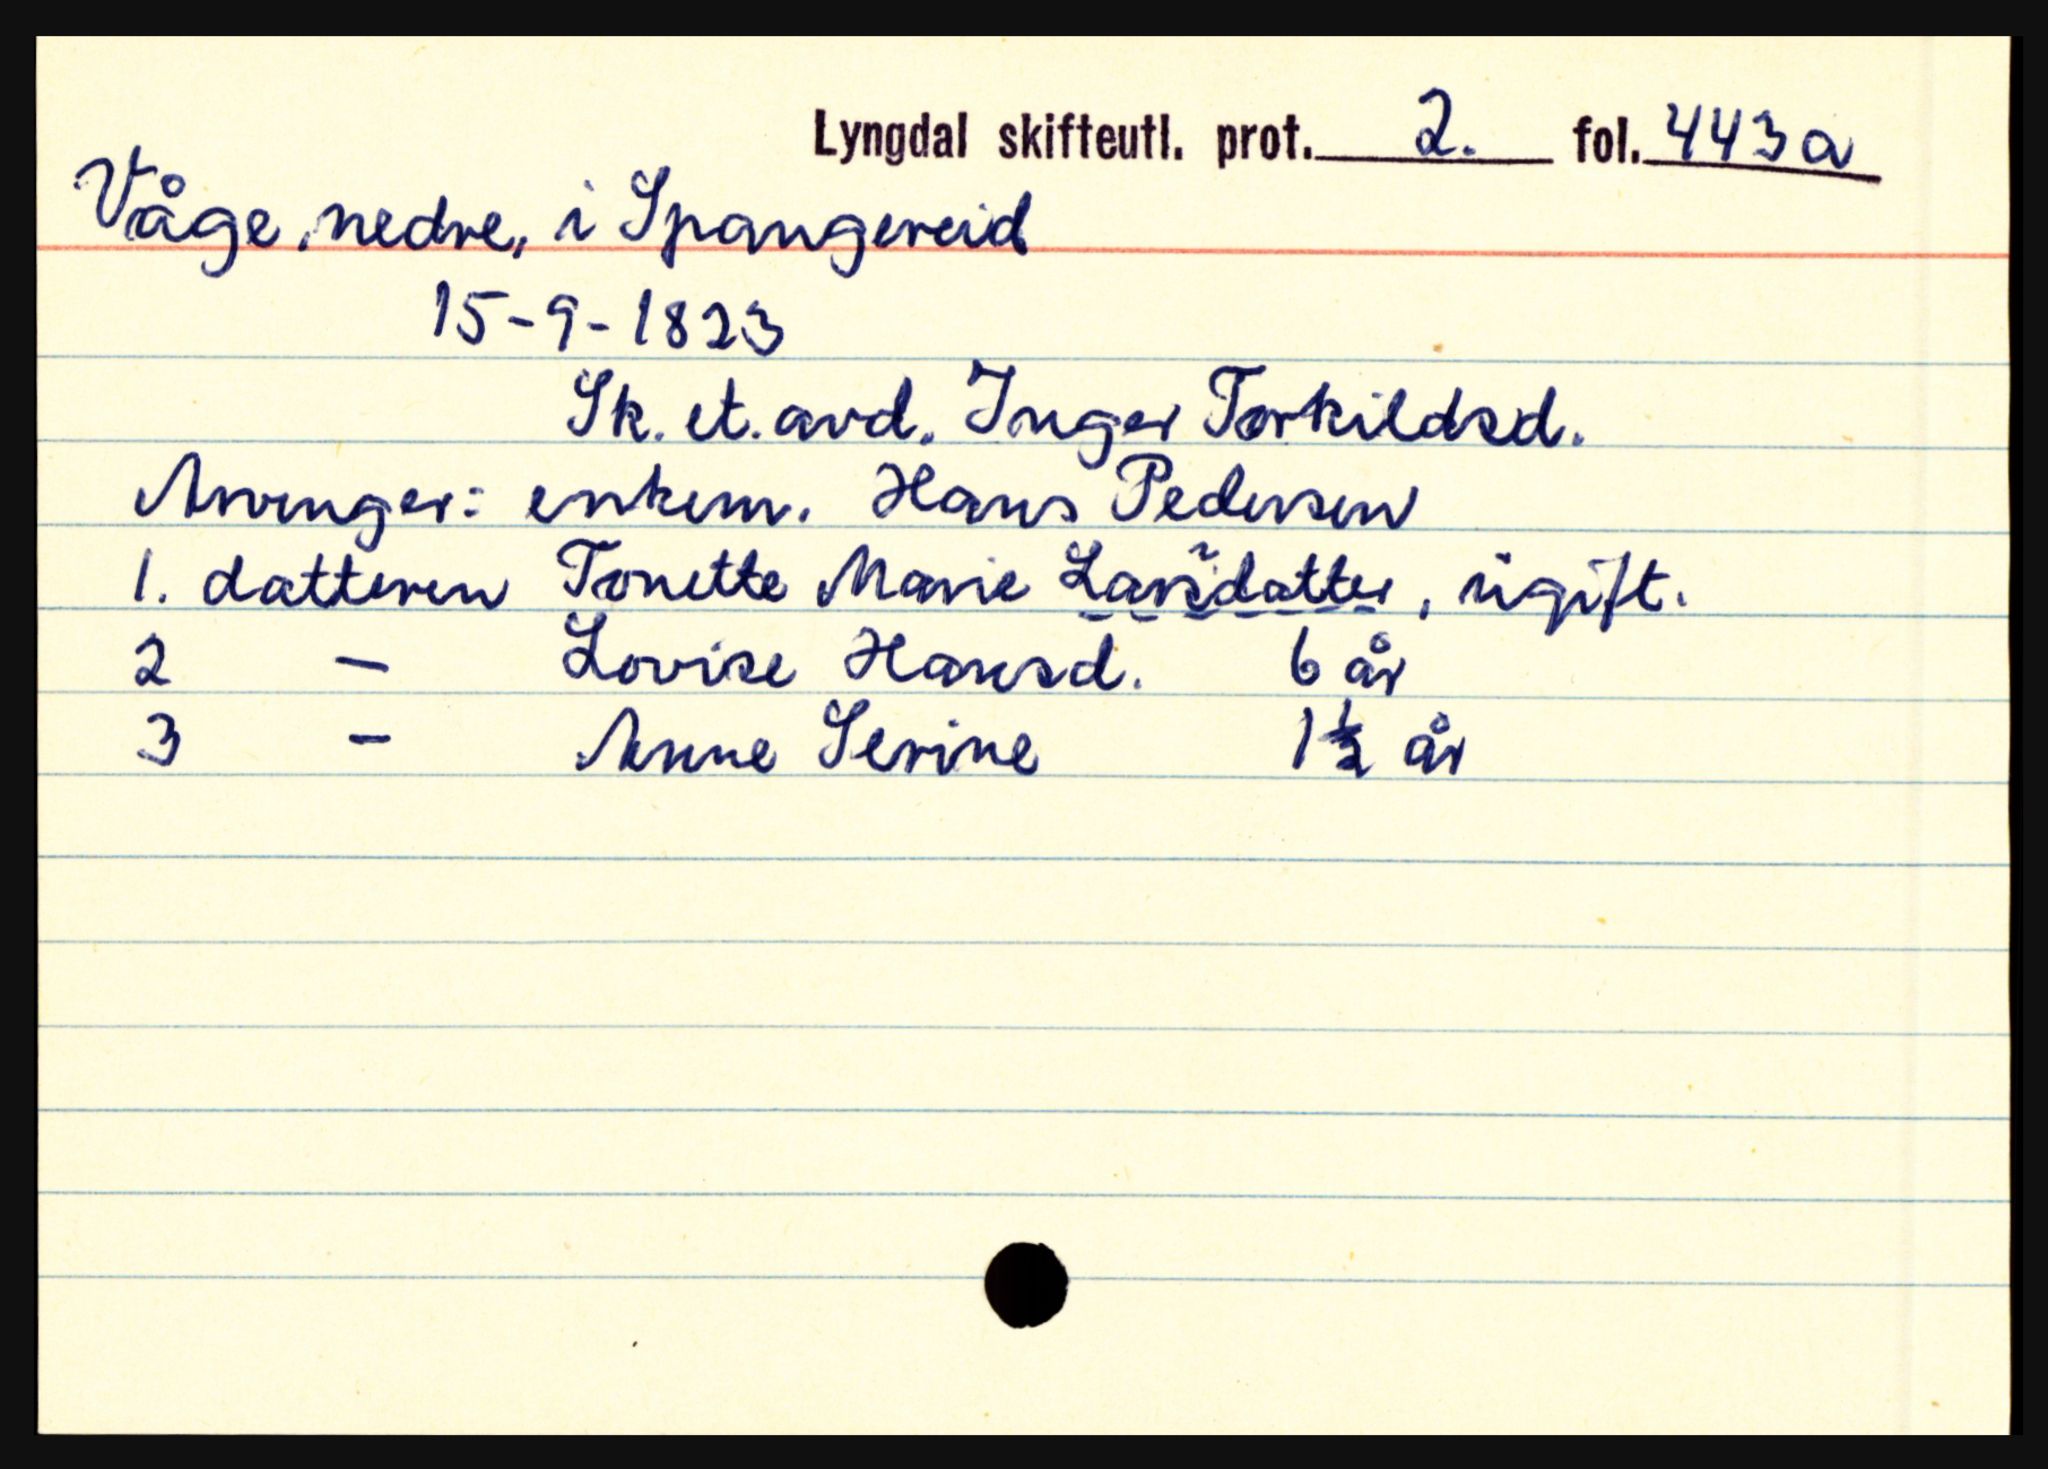 Lyngdal skifteutl. prot. 2. fol. 443a
Våge, nedre, i Spangereid
15-9-1823
Sk. et. avd. Inger Torkildsd.
Arvinger: enkem. Hans Pedersen
1. datteren Tonette Marie Larsdatter, ugift.
2 — Lovise Hansd. 6 år
3 — Anne Serine 1½ år